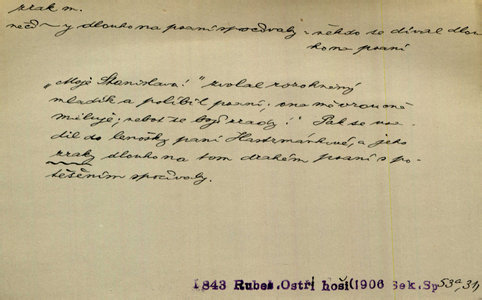 zrak m.
něčí ~y dlouho na psaní spočívaly, někdo se díval dlou-
ho na psaní
„Moje Stanislava!“ zvolal rozohněný
mladík a políbil psaní; ona mě vroucně
miluje; neboť se bojí zrady!“ Pak se usa-
dil do lenošky paní Hastrmánkové, a jeho
zraky dlouho na tom drahém psaní s po-
těšením spočívaly.
1843 Rubeš. Ostří hoši (1906 Sek. Sp 53a, 31)